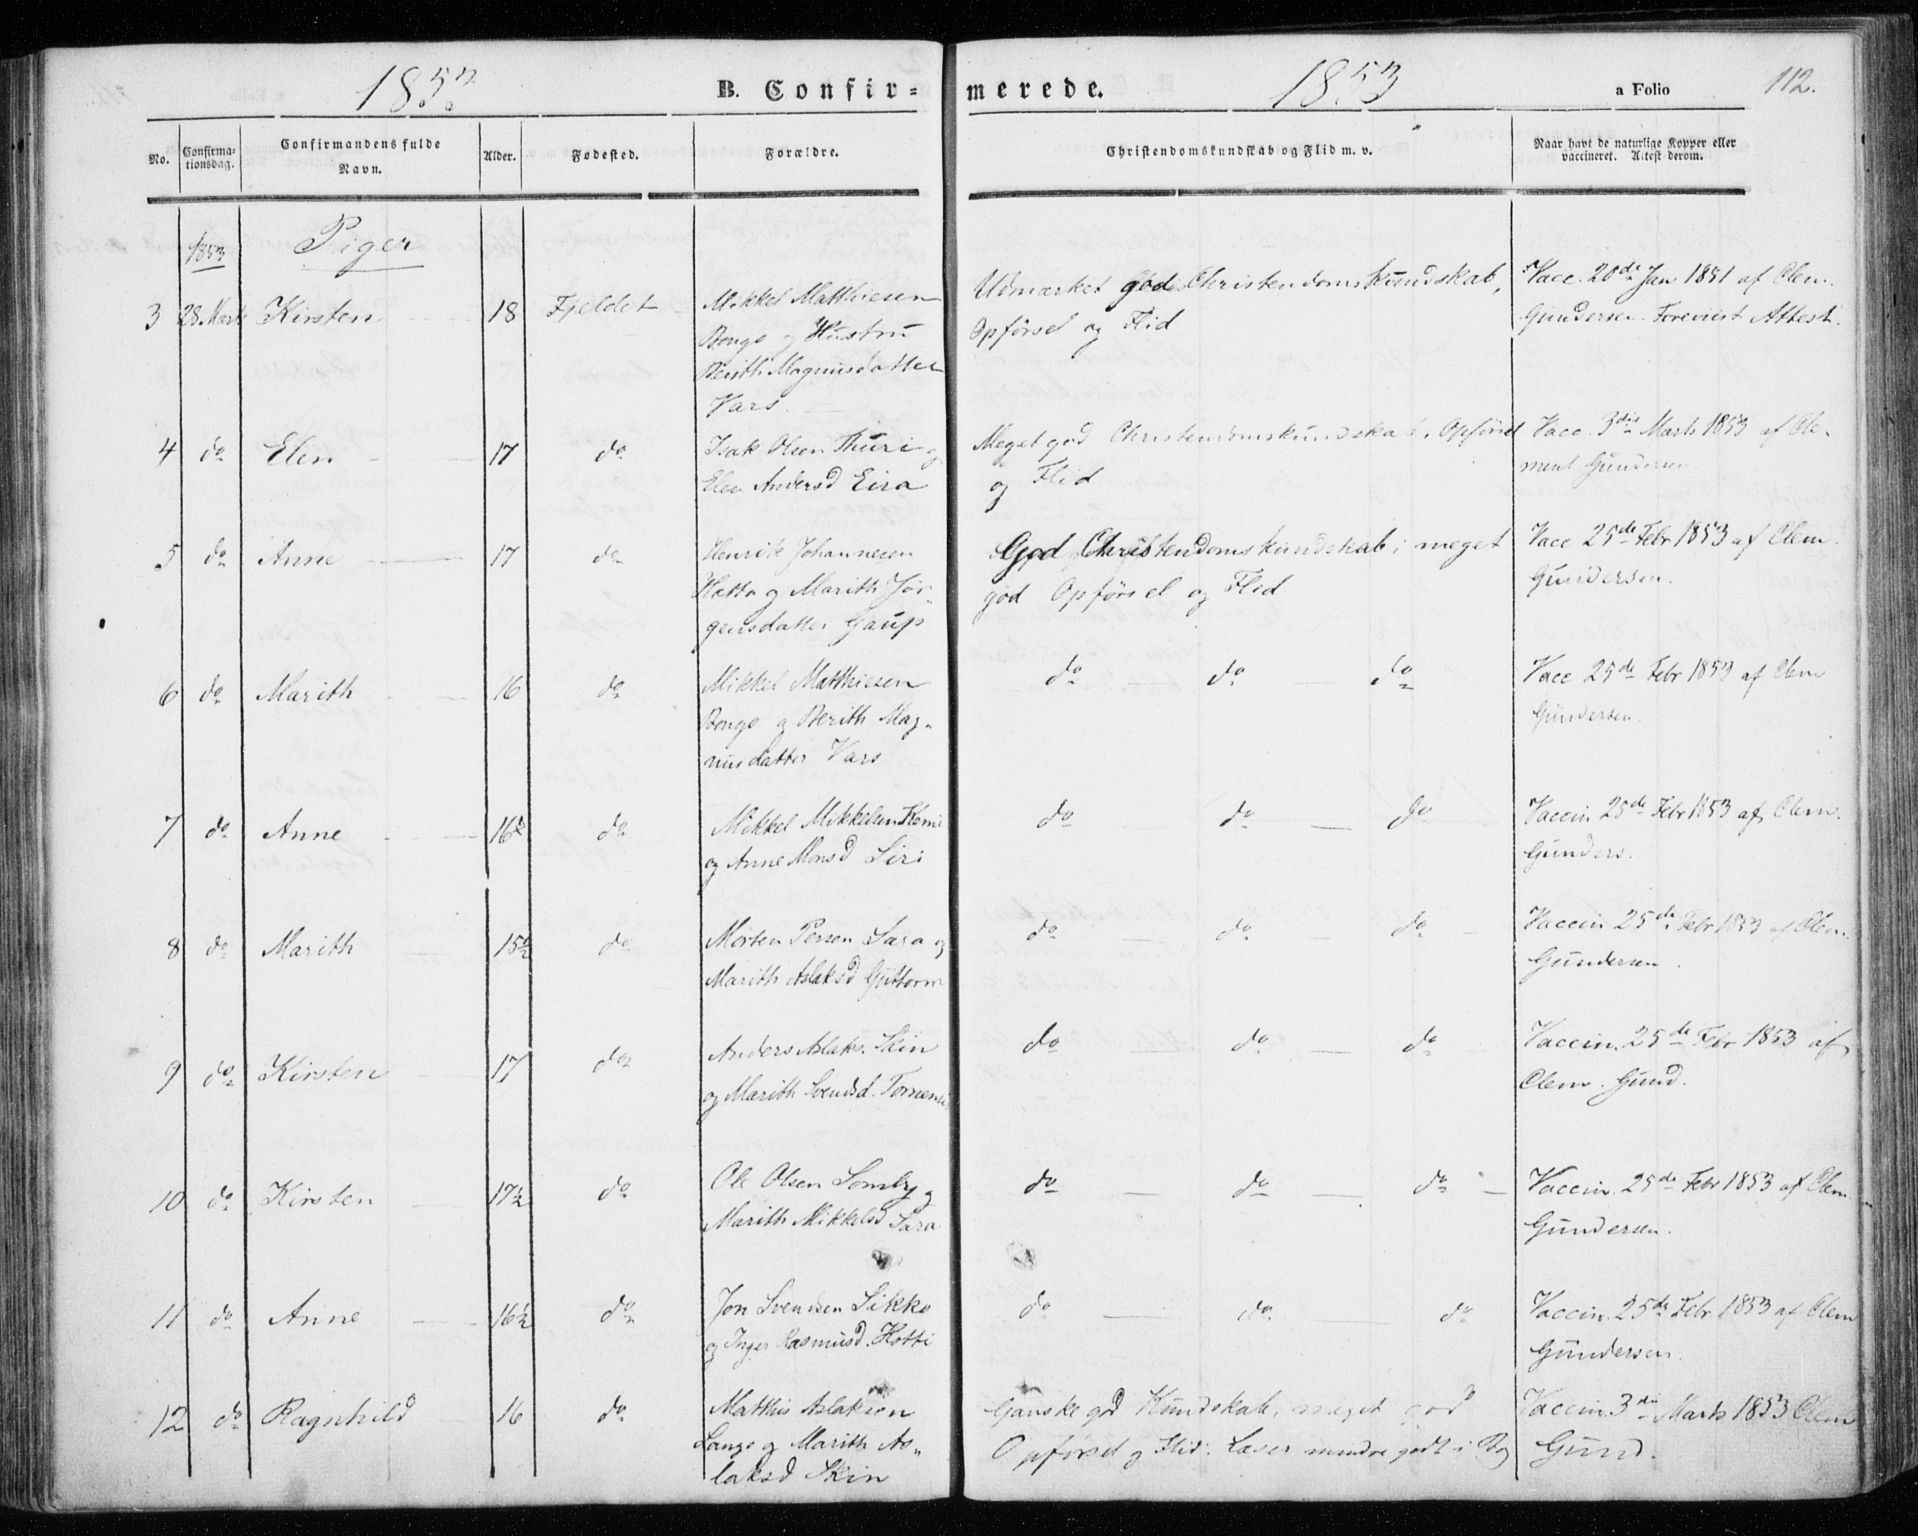 1853 B. Confirmerede. 1853 a Folio 112.
No. Confirmationsdag. Confirmandens fulde Navn. Alder. Fødested. Forældre. Christendomskundskab og Flid m. v. Naar havt de naturlige Kopper eller vaccineret. Attest derom.
1853 Piger
3 28 Marts Kirsten 18 Fjeldet Mikkel Matthiesen
Bongo og Hustru
Berith Magnusdatter
Vars.
Udmærket god Christendomskundskab,
Opførsel og Flid
Vacc. 20de Jan 1851 af Clem.
Gundersen. Foreviist Attest.
4 do Elen 17 do Isak Olsen Thuri og
Elen Andersd Eira
Meget god Christendomskundskab, Opførsel
og Flid
Vacc. 3die Marts 1853 af Cle-
ment Gundersen
5 do Anne 17 do Henrik Johannesen
Hætta og Marith Jör-
gensdatter Gaup
God Christendomskundskab; meget
god Opførsel og Flid
Vacc 25de Febr 1853 af Clem.
Gundersen.
6 do Marith 16 do Mikkel Matthiesen
Bongo og Berith Mag-
nusdatter Vars
do do do
Vacc 25de Febr 1853 af Clem
Gundersen.
7 do Anne 16½ do Mikkel Mikkelsen
og Anne Monsd Siri
do do do
Vaccin 25de Febr 1853 af Clem.
Gunders.
8 do Marith 15½ do Morten Persen Sara og
Marith Aslaksd Guttorm
do do do
Vaccin 25de Febr 1853 af Clem.
Gundersen.
9 do Kirsten 17 do Anders Aslaks. Skin
og Marith Svendsd.
do do do
Vaccin. 25de Febr 1853 af
Clem. Gund.
10 do Kirsten 17½ do Ole Olsen Somby og
Marith Mikkelsd Sara
do do do
Vaccin. 25de Febr 1853 af Clem.
Gundersen.
11 do Anne 16½ do Jon Svendsen Sikko
og Inger Rasmusd. Hotti
do do do
Vaccin. 25de Febr 1853 af Clem
Gundersen.
12 do Ragnhild 16 do Matthis Aslaksen
Lango og Marith As-
laksd Skin
Ganske god Kundskab, meget god
Opførsel og Flid. Læser mindre godt i Bog
Vaccin. 3die Marts 1853 Clem
Gund.